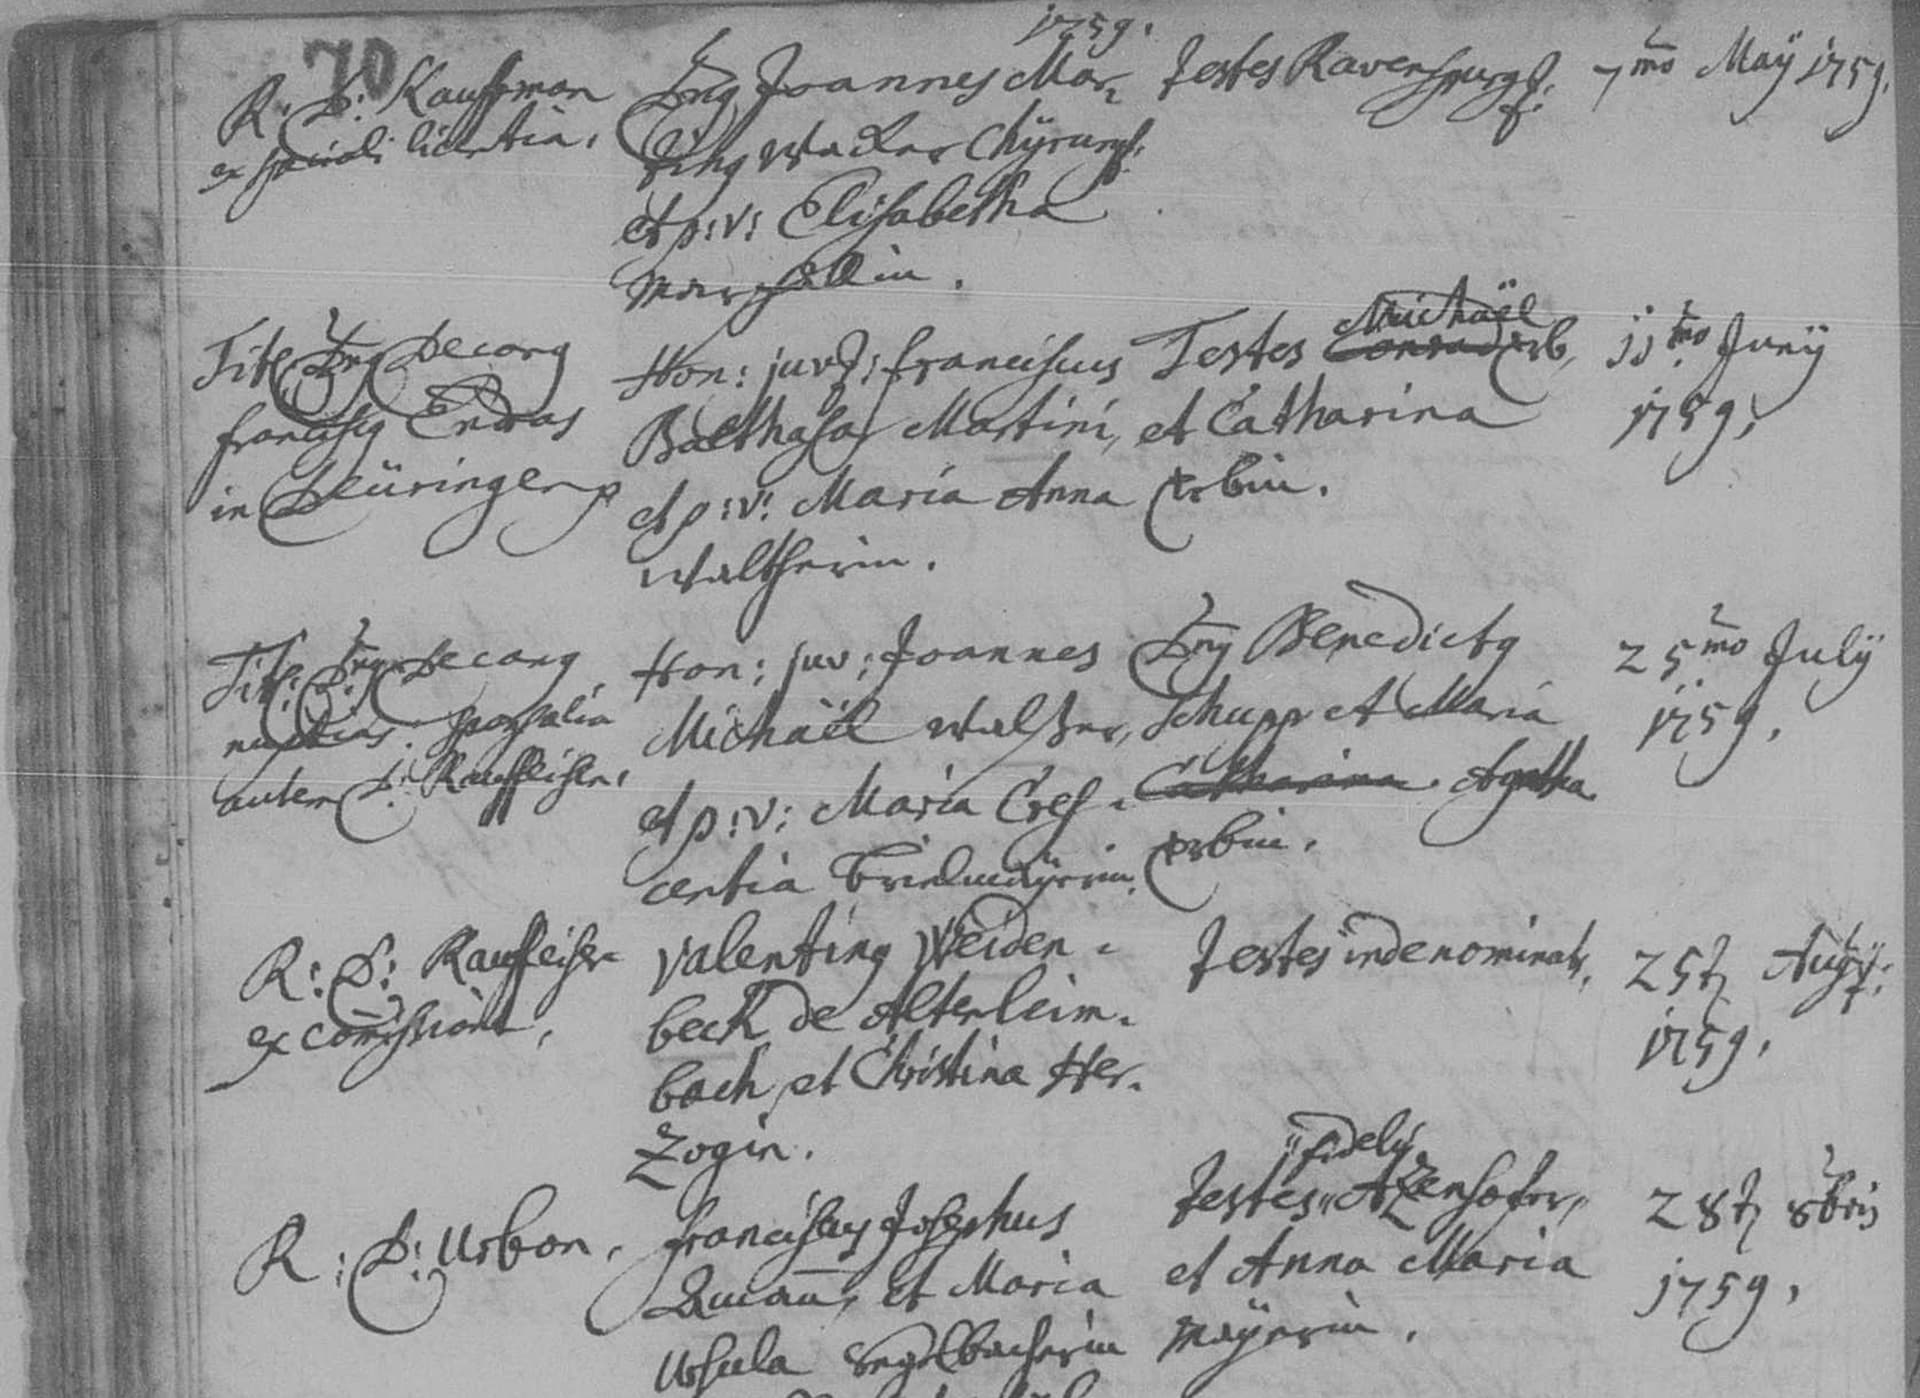 70
1759.
R: D: Kauffman
ex speciali licentia.
Dng Joannes Mar-
ting Wacker Chÿrurg:
et p: v: Elisabetha
Marschallin.
Testes Ravenspurg:
7mo Maÿ 1759.
Tit: Dng Decang
Franciscg Endras
in Deüringen
Hon: juv: Franciscus
Balthasar Martini,
et p: v: Maria Anna
Waltherin.
Michäel
Testes Conrad Erb,
et Catharina
Erbin.
11mo Junÿ
1759.
Tit: Dng Decang
nuptias. sponsalia
autem D: Kauffeisen.
Hon: juv: Joannes
Michäel Walser,
et p: v: Maria Cres-
centia Brielmaÿerin.
Dng Benedictg
Schupp et Maria
Catharina Agatha
Erbin.
25mo Julÿ
1759.
R: D: Kauffeisen
ex comissione.
Valenting Weiden-
beck de Alterleim-
bach et Christina Her-
zogin.
Testes indenominat.
25t Aug:
1759.
R: D: Urban.
Franciscus Josephus
et Maria
Ursula Segelbacherin
fidelg
Testes, Atzenhofer,
et Anna Maria
Maÿerin.
28t 8bris
1759.